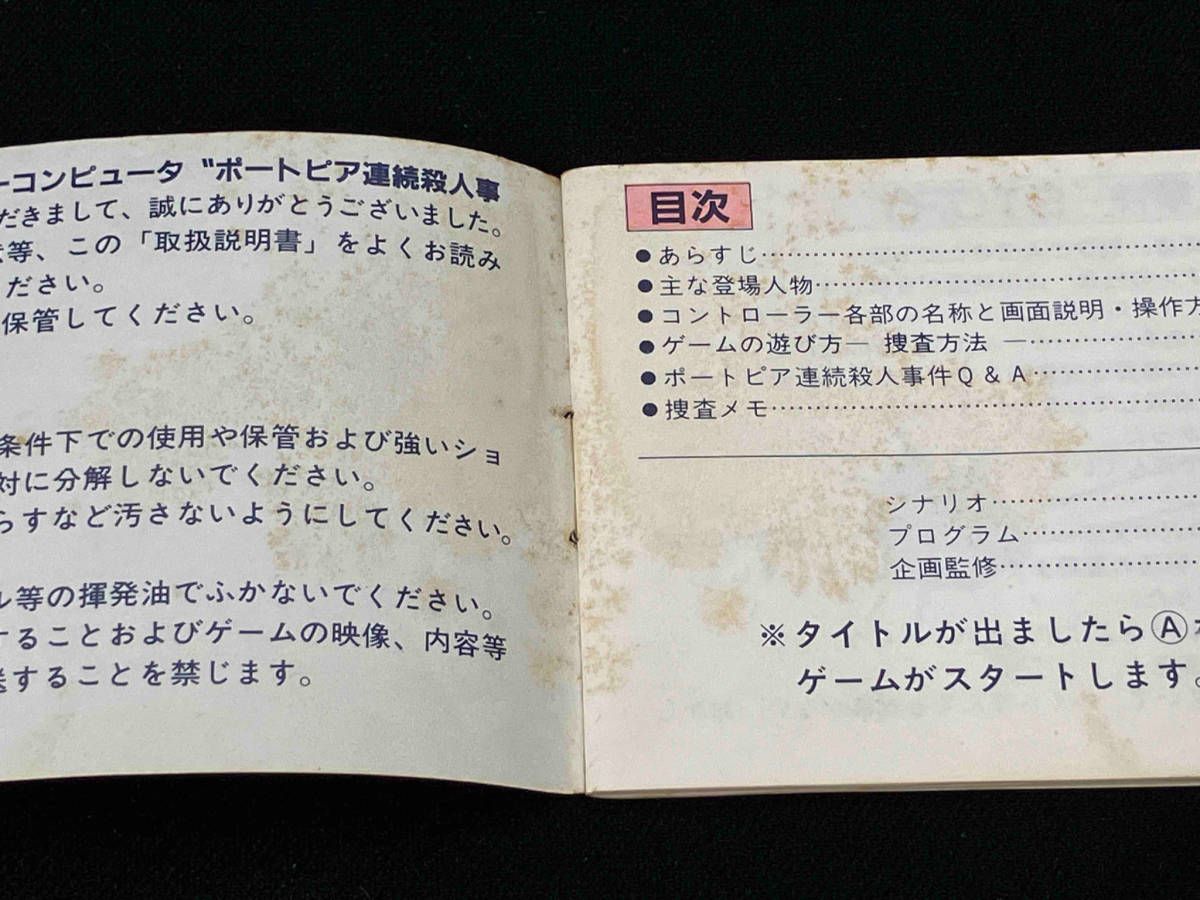 ーコンピュータ〝ポートピア連続殺人事
だきまして、誠にありがとうございました。
等、この「取扱説明書」をよくお読み
ください。
保管してください。
条件下での使用や保管および強いショ
対に分解しないでください。
らすなど汚さないようにしてください。
ル等の揮発油でふかないでください。
することおよびゲームの映像、内容等
送することを禁じます。
目次
●あらすじ……………………………
●主な登場人物……………………………
●コントローラー各部の名称と画面説明・操作方
●ゲームの遊び方― 捜査方法 ―……………
●ポートピア連続殺人事件Q&A……………
●捜査メモ……………………………
シナリオ……………
プログラム……………
企画監修……………
※タイトルが出ましたらⒶを
ゲームがスタートします。